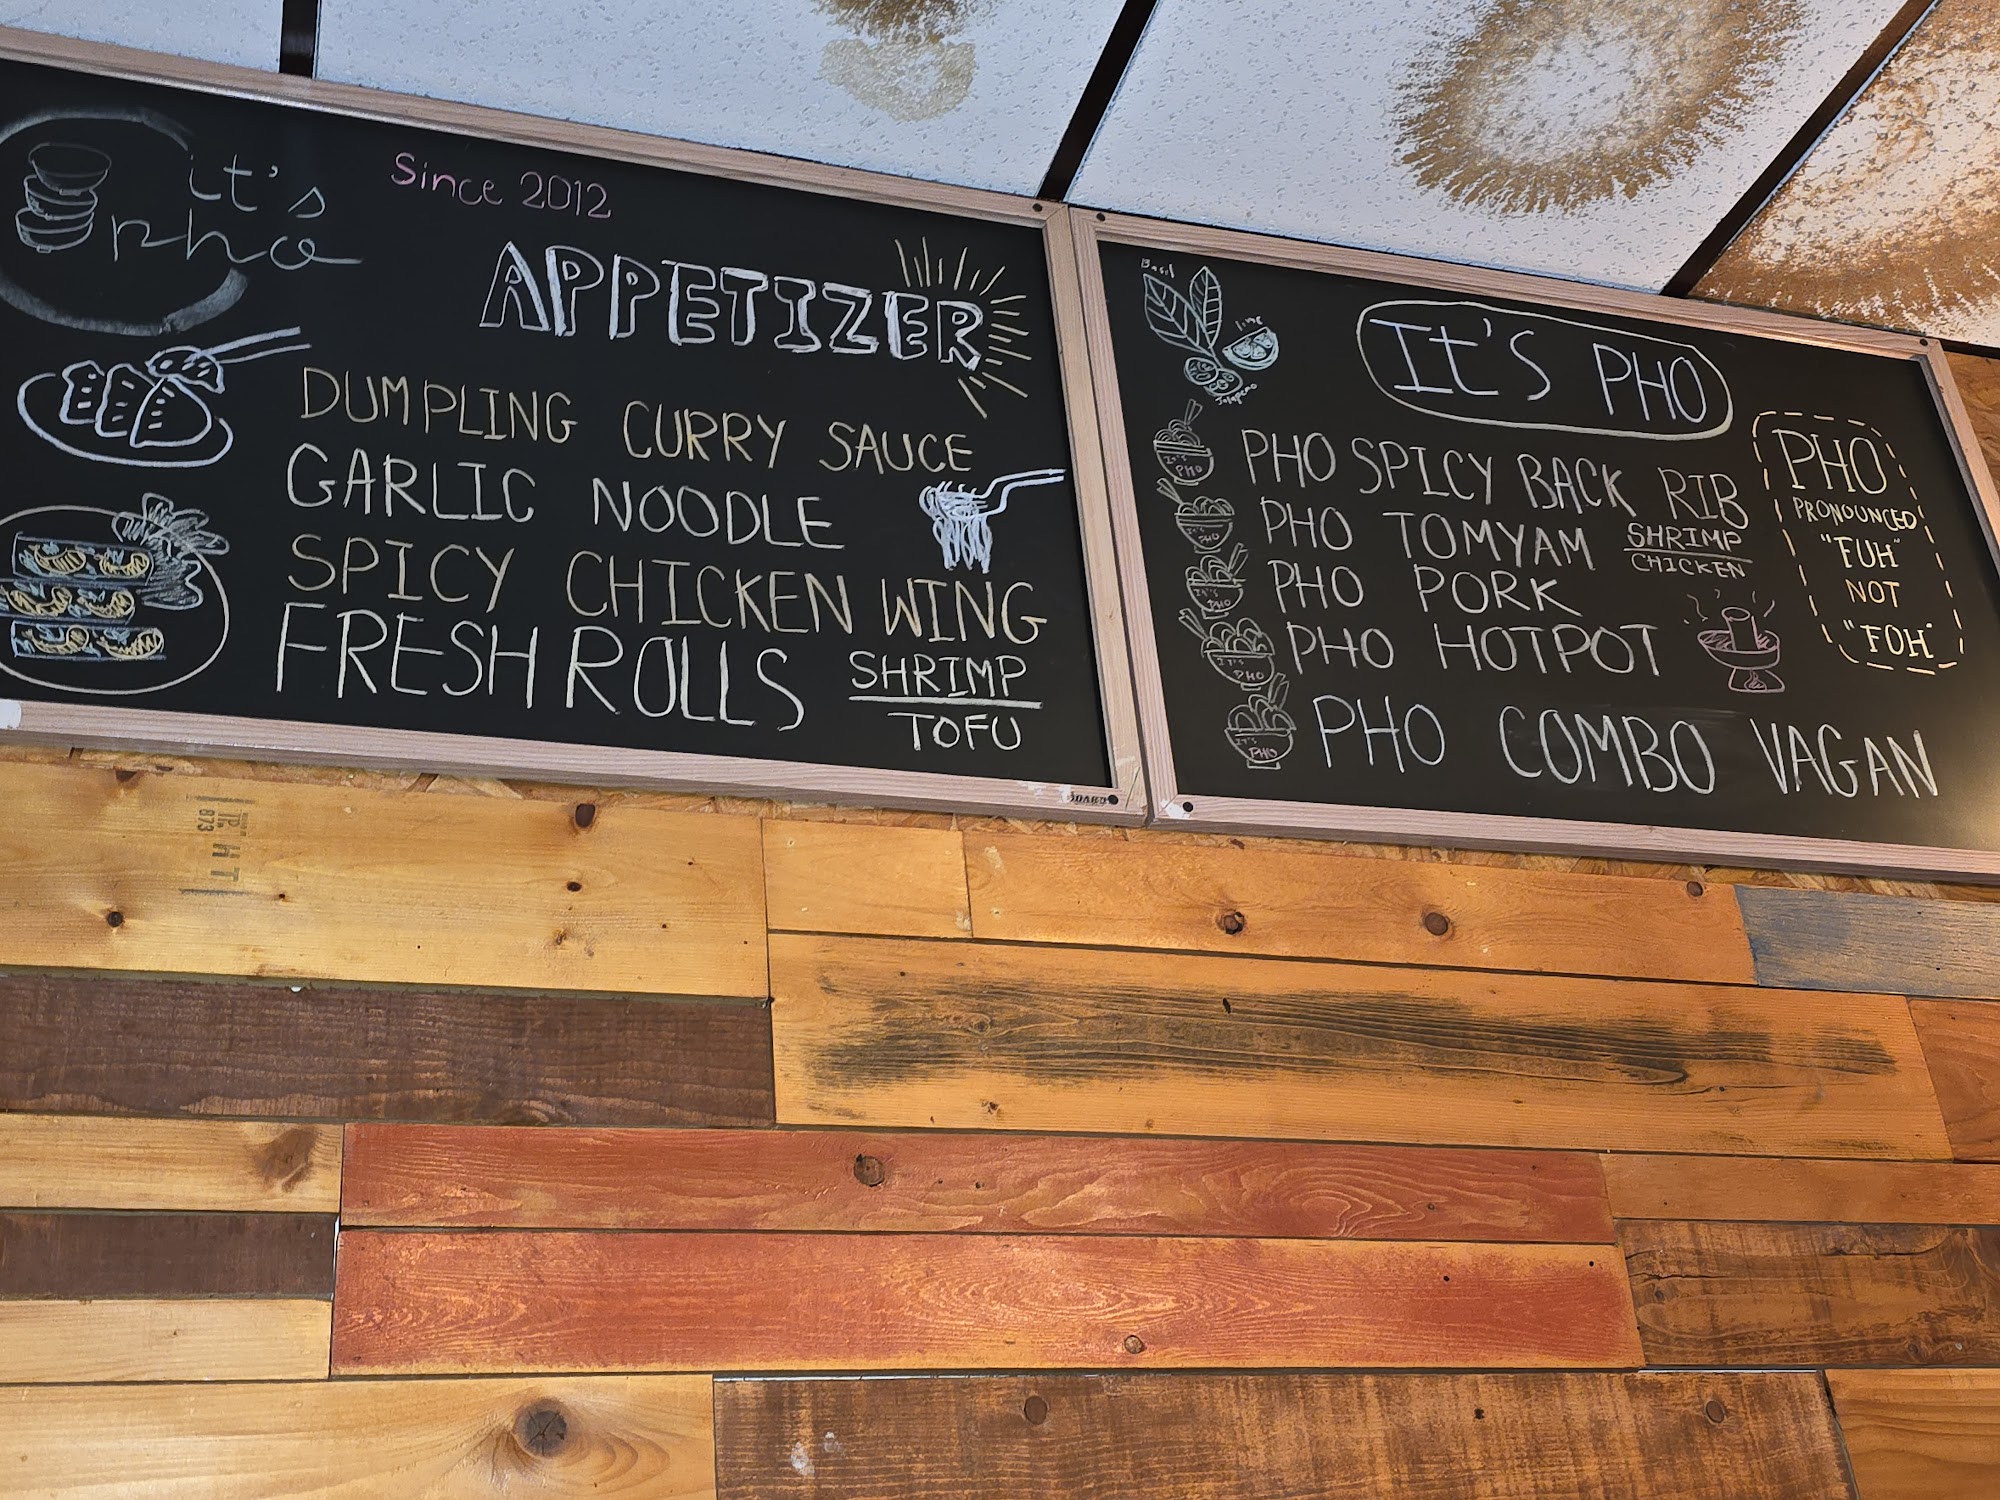 it's
pho
Since 2012
APPETIZER
DUMPLING CURRY SAUCE
GARLIC NOODLE
SPICY CHICKEN WING
FRESH ROLLS SHRIMP
TOFU
BOARD
Basil
lime
Jalapeno
It'S PHO
PHO SPICY BACK RIB
PHO TOMYAM SHRIMP
CHICKEN
PHO PORK
PHO HOTPOT
PHO COMBO VAGAN
IT'S
PHO
IT'S
PHO
IT'S
PHO
IT'S
PHO
IT'S
PHO
PHO
PRONOUNCED
"FUH"
NOT
"FOH"
TR H T
873